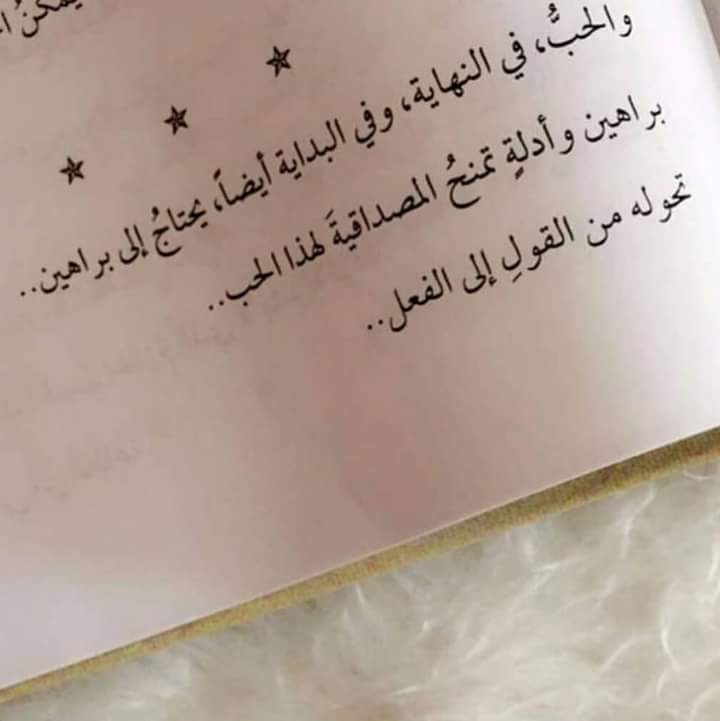 يمكنُ
والحبُّ، في النهاية، وفي البداية أيضاً، يحتاجُ إلى براهين..
براهين وأدلةٍ تمنحُ المصداقيةَ لهذا الحب..
تحوله من القولِ إلى الفعل..